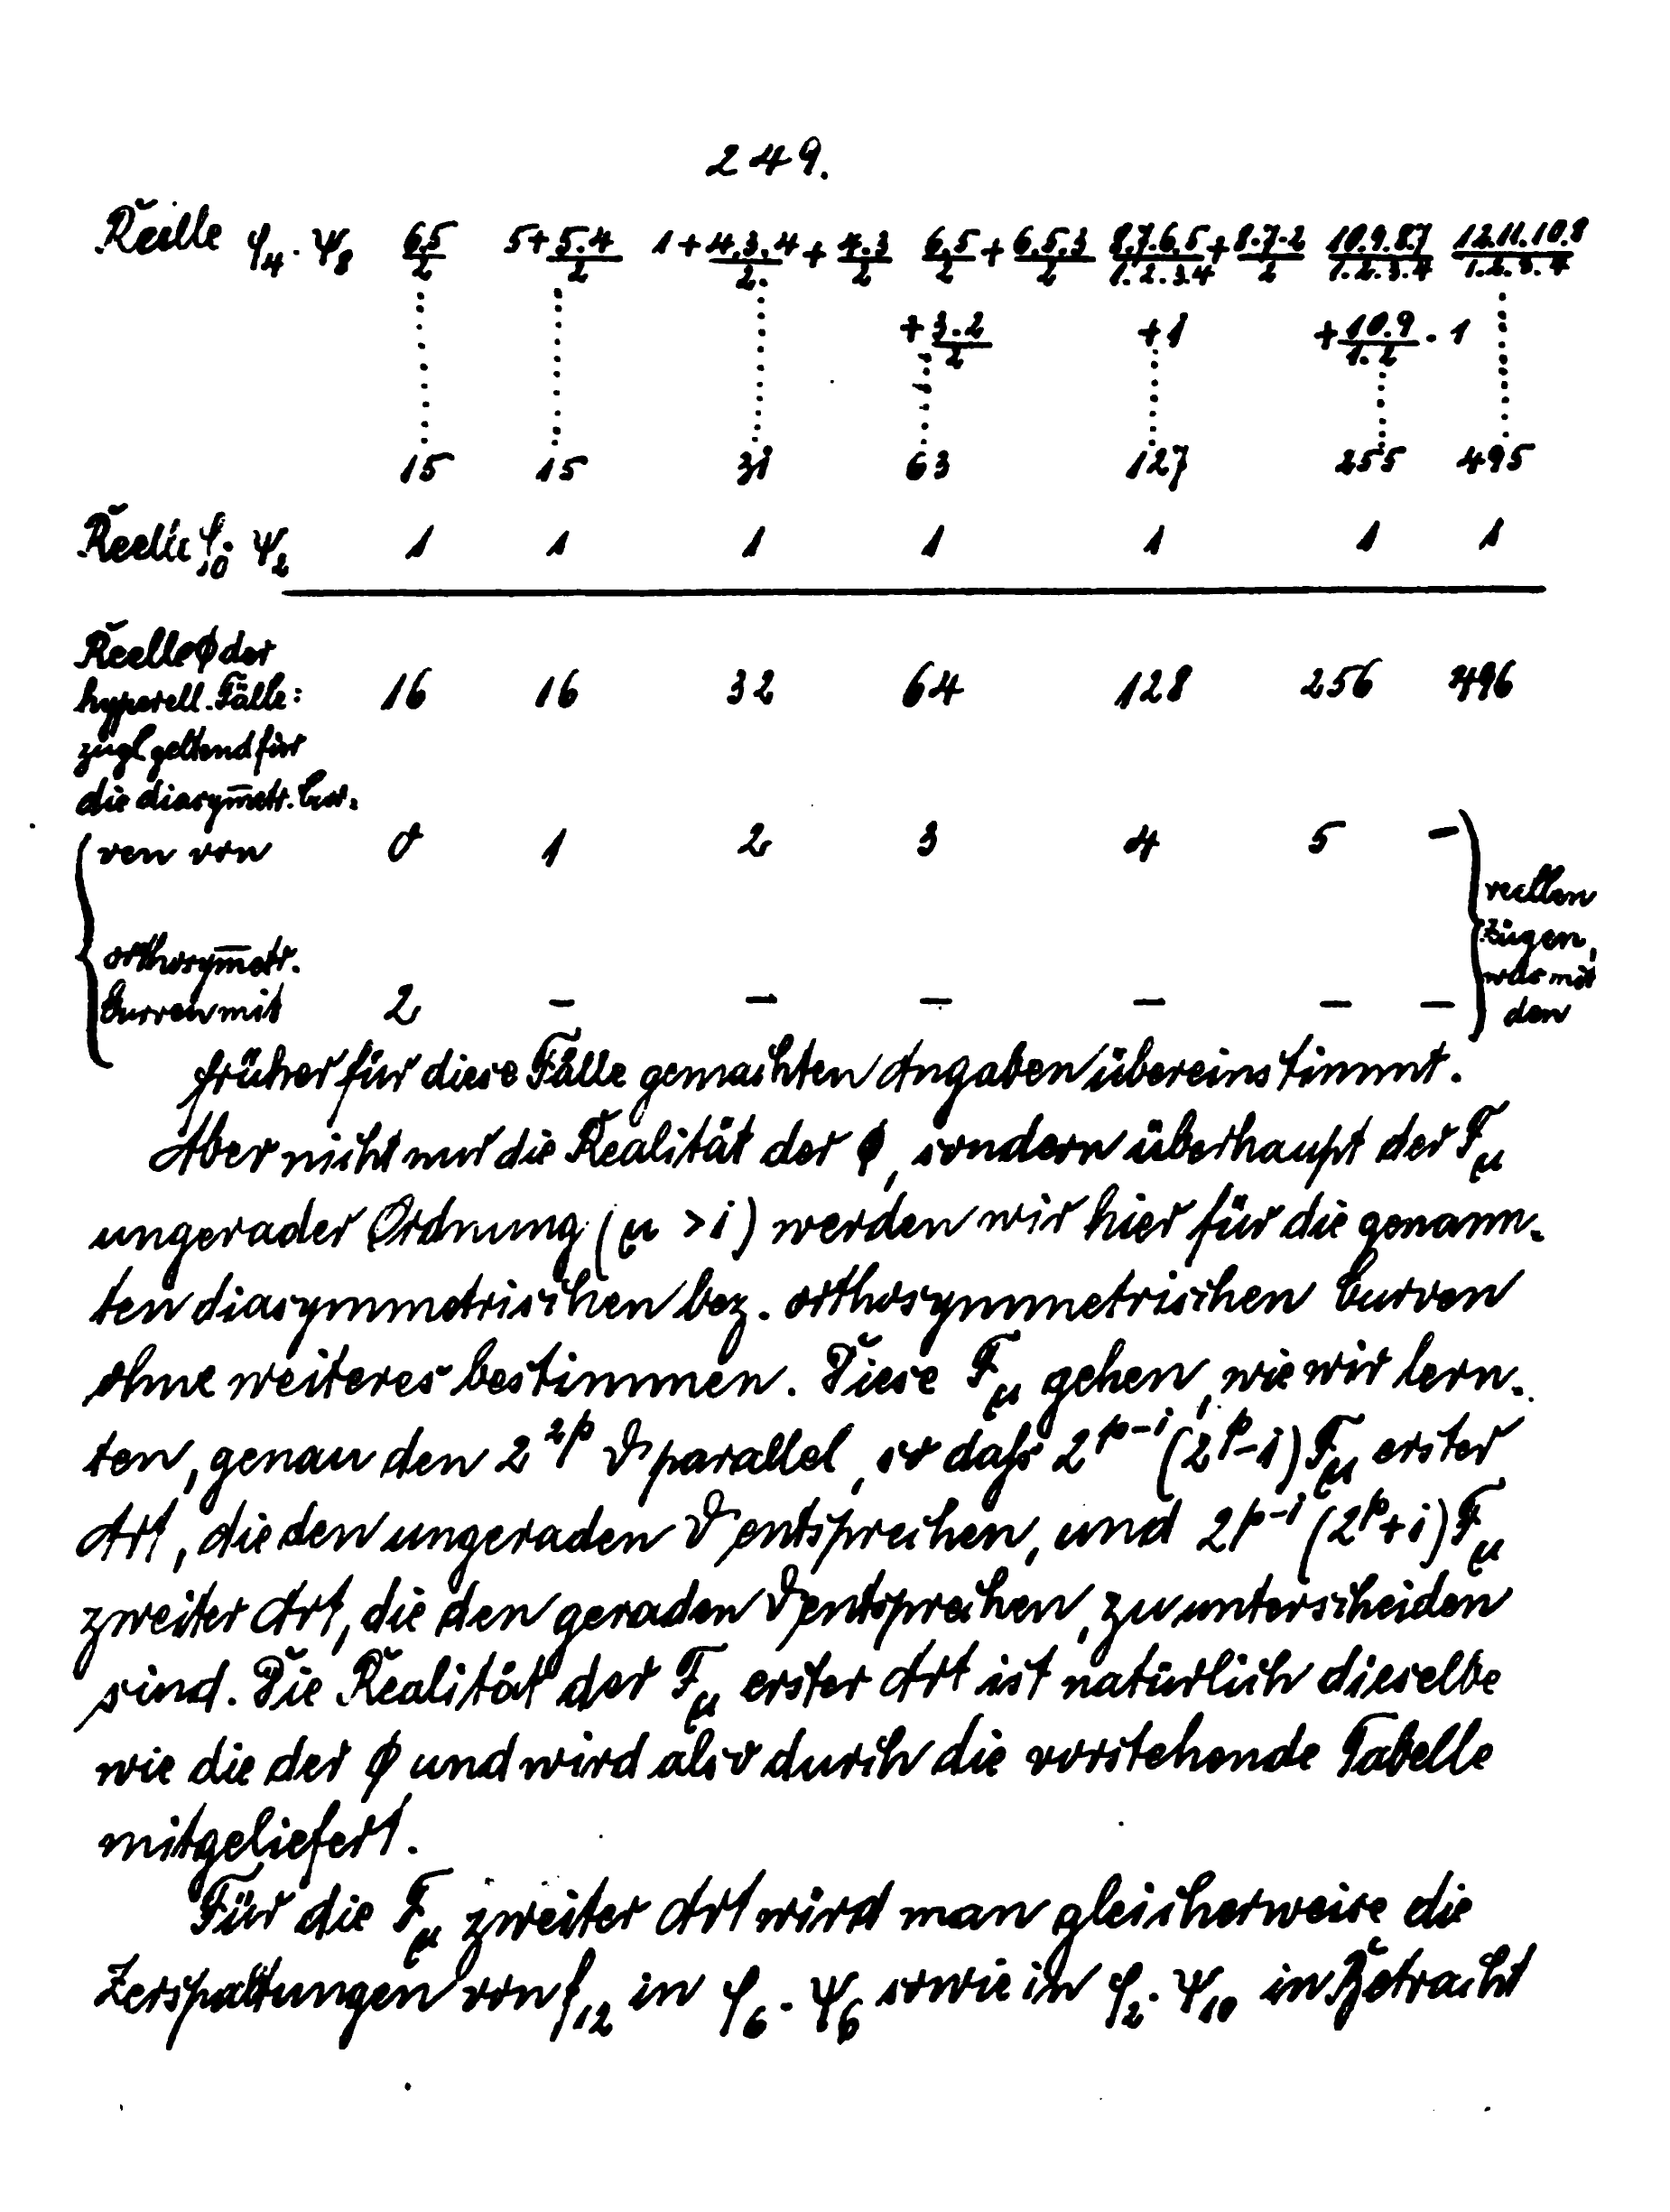 249.
Reelle φ₄·ψ₈ 6.5/2 5+5.4/2 1+4.3.4/2.+4.3/2 6.5/2+6.5.3/2 8.7.6.5/1.2.3.4+8.7.2/2 10.9.8.7/1.2.3.4 12.11.10.9/1.2.3.4
+3.2/2 +1 +10.9/1.2·1
15 15 31 63 127 255 495
Reelle φ₁₀·ψ₂ 1 1 1 1 1 1 1
Reelle ϕ der
hyperell. Fälle: 16 16 32 64 128 256 496
zugl geltend für
die diasym̅etr. Cur-
ven von 0 1 2 3 4 5 –
reellen
Zügen,
orthosym̅etr.
was mit
Curven mit 2 – – – – – – den
früher für diese Fälle gemachten Angaben übereinstimmt.
Aber nicht nur die Realität der ϕ, sondern überhaupt der F_μ
ungerader Ordnung (μ > 1) werden wir hier für die genann-
ten diasymmetrischen bez. orthosymmetrischen Curven
ohne weiteres bestimmen. Diese F_μ gehen, wie wir lern-
ten, genau den 2^{2p} ϑ parallel, so dafs 2^{p-1}(2^p-1) F_μ erster
Art, die den ungeraden ϑ entsprechen, und 2^{p-1}(2^p+1) F_μ
zweiter Art, die den geraden ϑ entsprechen, zu unterscheiden
sind. Die Realität der F_μ erster Art ist natürlich dieselbe
wie die der ϕ und wird also durch die vorstehende Tabelle
mitgeliefert.
Für die F_μ zweiter Art wird man gleicherweise die
Zerspaltungen von f₁₂ in φ₆·ψ₆ sowie in φ₂·ψ₁₀ in Betracht